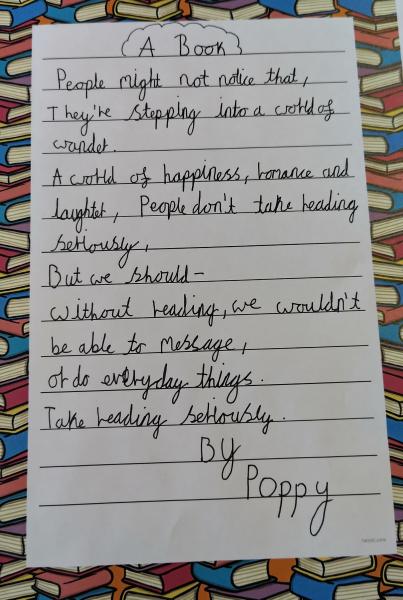 A Book
People might not notice that,
They're stepping into a world of
wonder.
A world of happiness, romance and
laughter, People don't take reading
seriously,
But we should-
without reading, we wouldn't
be able to message,
or do everyday things.
Take reading seriously.
By
Poppy